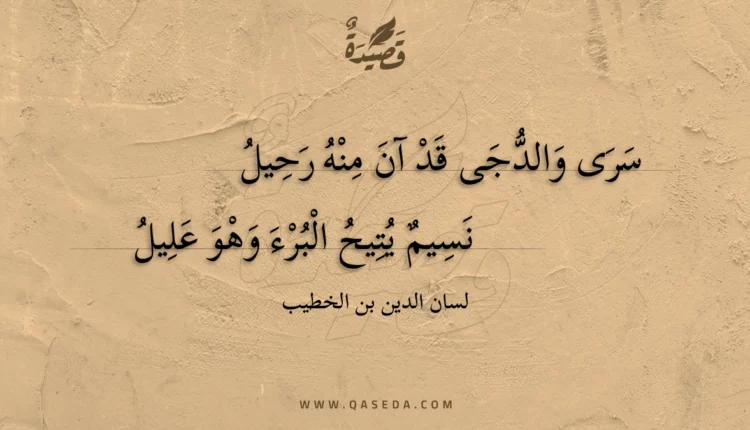 قَصِيدَةٌ
سَرَى وَالدُّجَى قَدْ آنَ مِنْهُ رَحِيلُ
نَسِيمٌ يُتِيحُ الْبُرْءَ وَهْوَ عَلِيلُ
لسان الدين بن الخطيب
WWW.QASEDA.COM